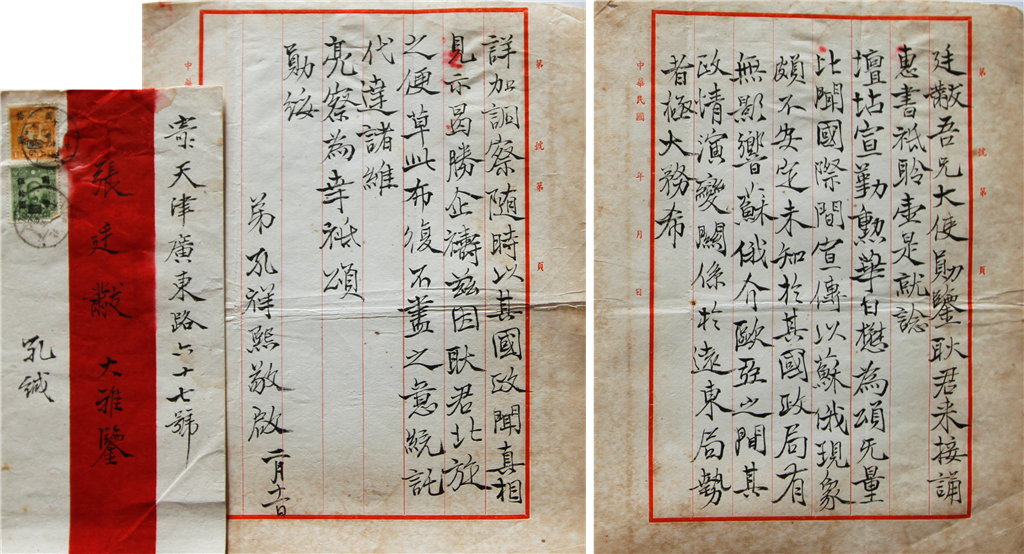 廷黻吾兄大使勛鑒耿君来接誦
惠書祗聆壹是就諗
壇坫宣勤勲華日懋為頌旡量
比聞國際間宣傳以蘇俄現象
頗不安定未知於其國政局有
無影響蘇俄介歐亞之間其
政情演變關係於遠東局勢
者極大務布
第 號 第 頁
中華民國 年 月 日
詳加調察随時以其國政聞真相
見示曷勝企禱茲因耿君北旋
之便草此布復不盡之意統託
代達諸維
亮察為幸祇頌
勛綏
弟孔祥熙敬啟 二月十一日
第 號 第 頁
中華
寄天津廣東路六十七號
張廷黻大雅鑒
孔緘